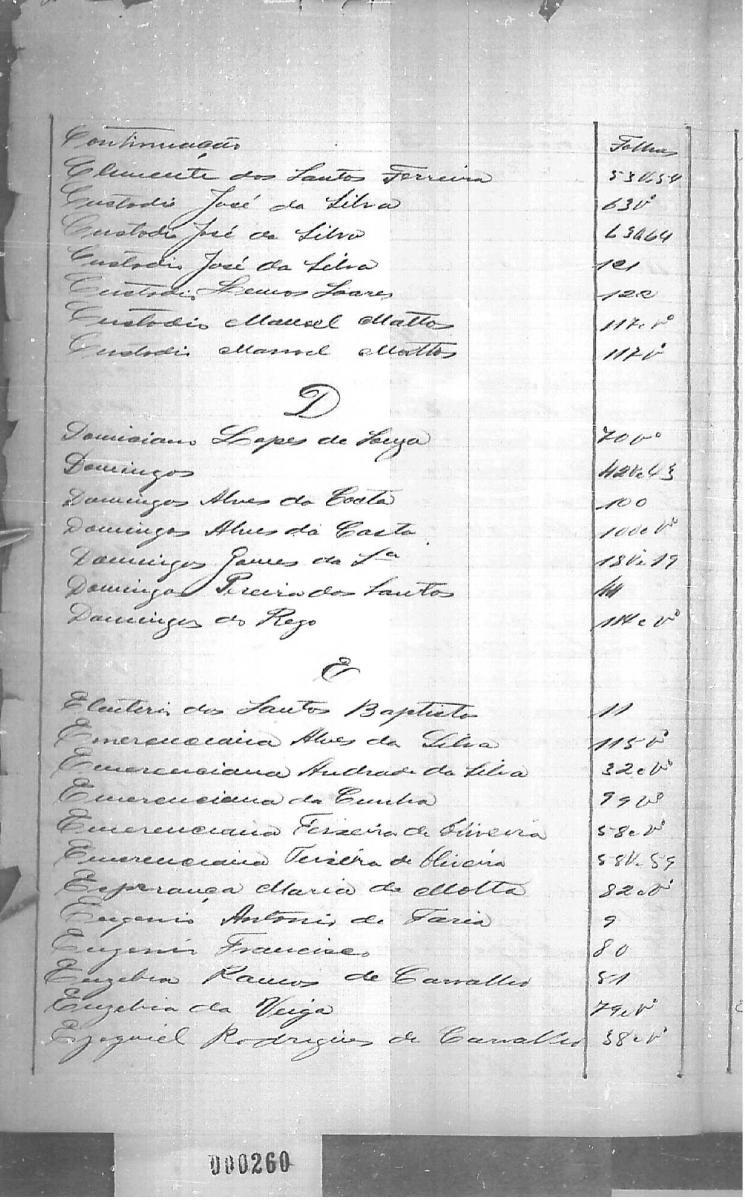 Continuação Folhas
Clemente dos Santos Ferreira 53V.54
Custodio José da Silva 63Vº
Custodio José da Silva 63a64
Custodio José da Silva 121
Custodio Lemos Soares 122
Custodio Manoel Mattos 117eVº
Custodio Manoel Mattos 117Vº
D
Domiciano Lopes de Souza 70Vº
Domingos 42Ve43
Domingos Alves da Costa 100
Domingos Alves da Costa 100eVº
Domingos Gomes da Sª 18Ve19
Domingos Pereira dos Santos
Domingos do Rego
E
Eleuterio dos Santos Baptista 11
Emerenciana Alves da Silva 115Vº
Emerenciana Andrade da Silva 32eVº
Emerenciana da Cunha 99Vº
Emerenciana Teixeira de Oliveira 58eVº
Emerenciana Teixeira de Oliveira 58Ve59
Esperança Maria da Motta 82eVº
Eugenio Antonio de Faria 9
Eugenio Francisco 80
Euzebia Ramos de Carvalho 51
Euzebia da Veiga 79eVº
Ezequiel Rodrigues de Carvalho 38eVº
000260